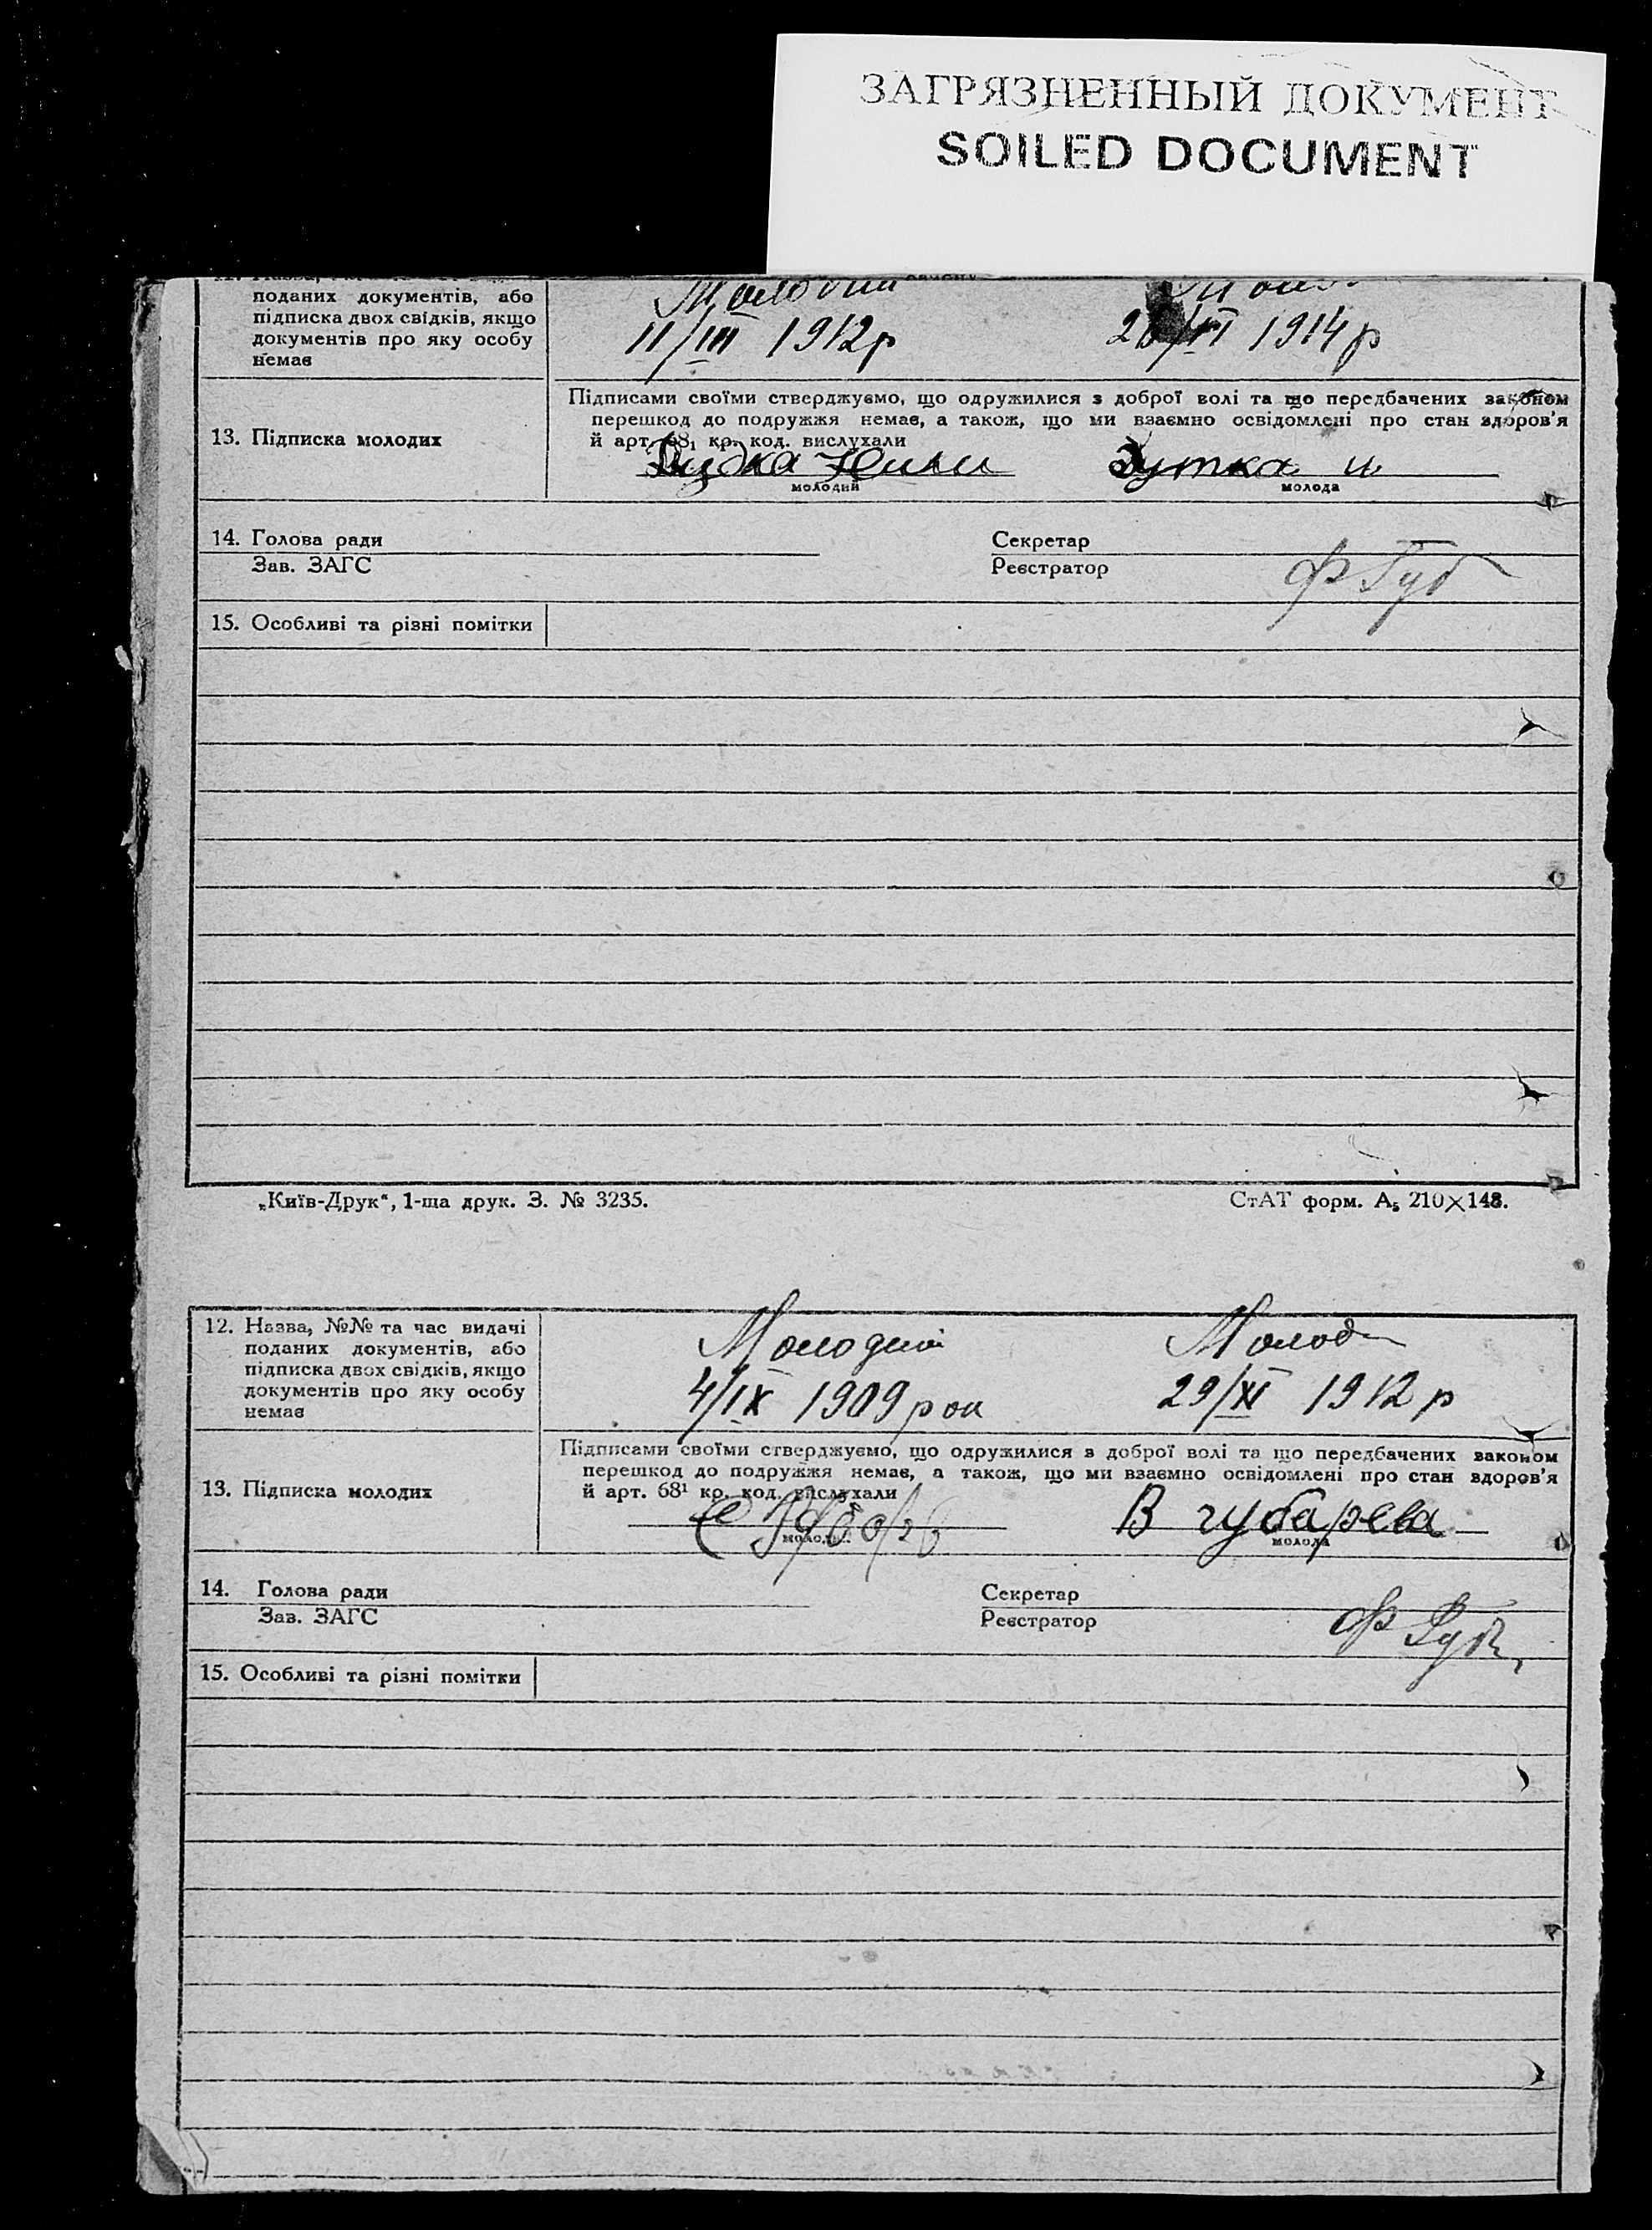 ЗАГРЯЗНЕННЫЙ ДОКУМЕНТ
SOILED DOCUMENT
поданих документів, або
підписка двох свідків, якщо
документів про яку особу
немає
Молодий
11/III 1912 р
1914 р
13. Підписка молодих
Підписами своїми стверджуємо, що одружилися з доброї волі та що передбачених законом
перешкод до подружжя немає, а також, що ми взаємно освідомлені про стан здоров'я
й арт. 68₁ кр. код. вислухали
молодий
молода
14. Голова ради
Зав. ЗАГС
Секретар
Реєстратор
15. Особливі та різні помітки
„Київ-Друк“, 1-ша друк. З. № 3235.
СтАТ форм. А₅ 210×148.
12. Назва, №№ та час видачі
поданих документів, або
підписка двох свідків, якщо
документів про яку особу
немає
Молодий
Молод
4/IX 1909 рок
29/XI 1912 р
13. Підписка молодих
Підписами своїми стверджуємо, що одружилися з доброї волі та що передбачених законом
перешкод до подружжя немає, а також, що ми взаємно освідомлені про стан здоров'я
й арт. 68¹ кр. код. вислухали
В чубарева
молода
14. Голова ради
Зав. ЗАГС
Секретар
Реєстратор
15. Особливі та різні помітки